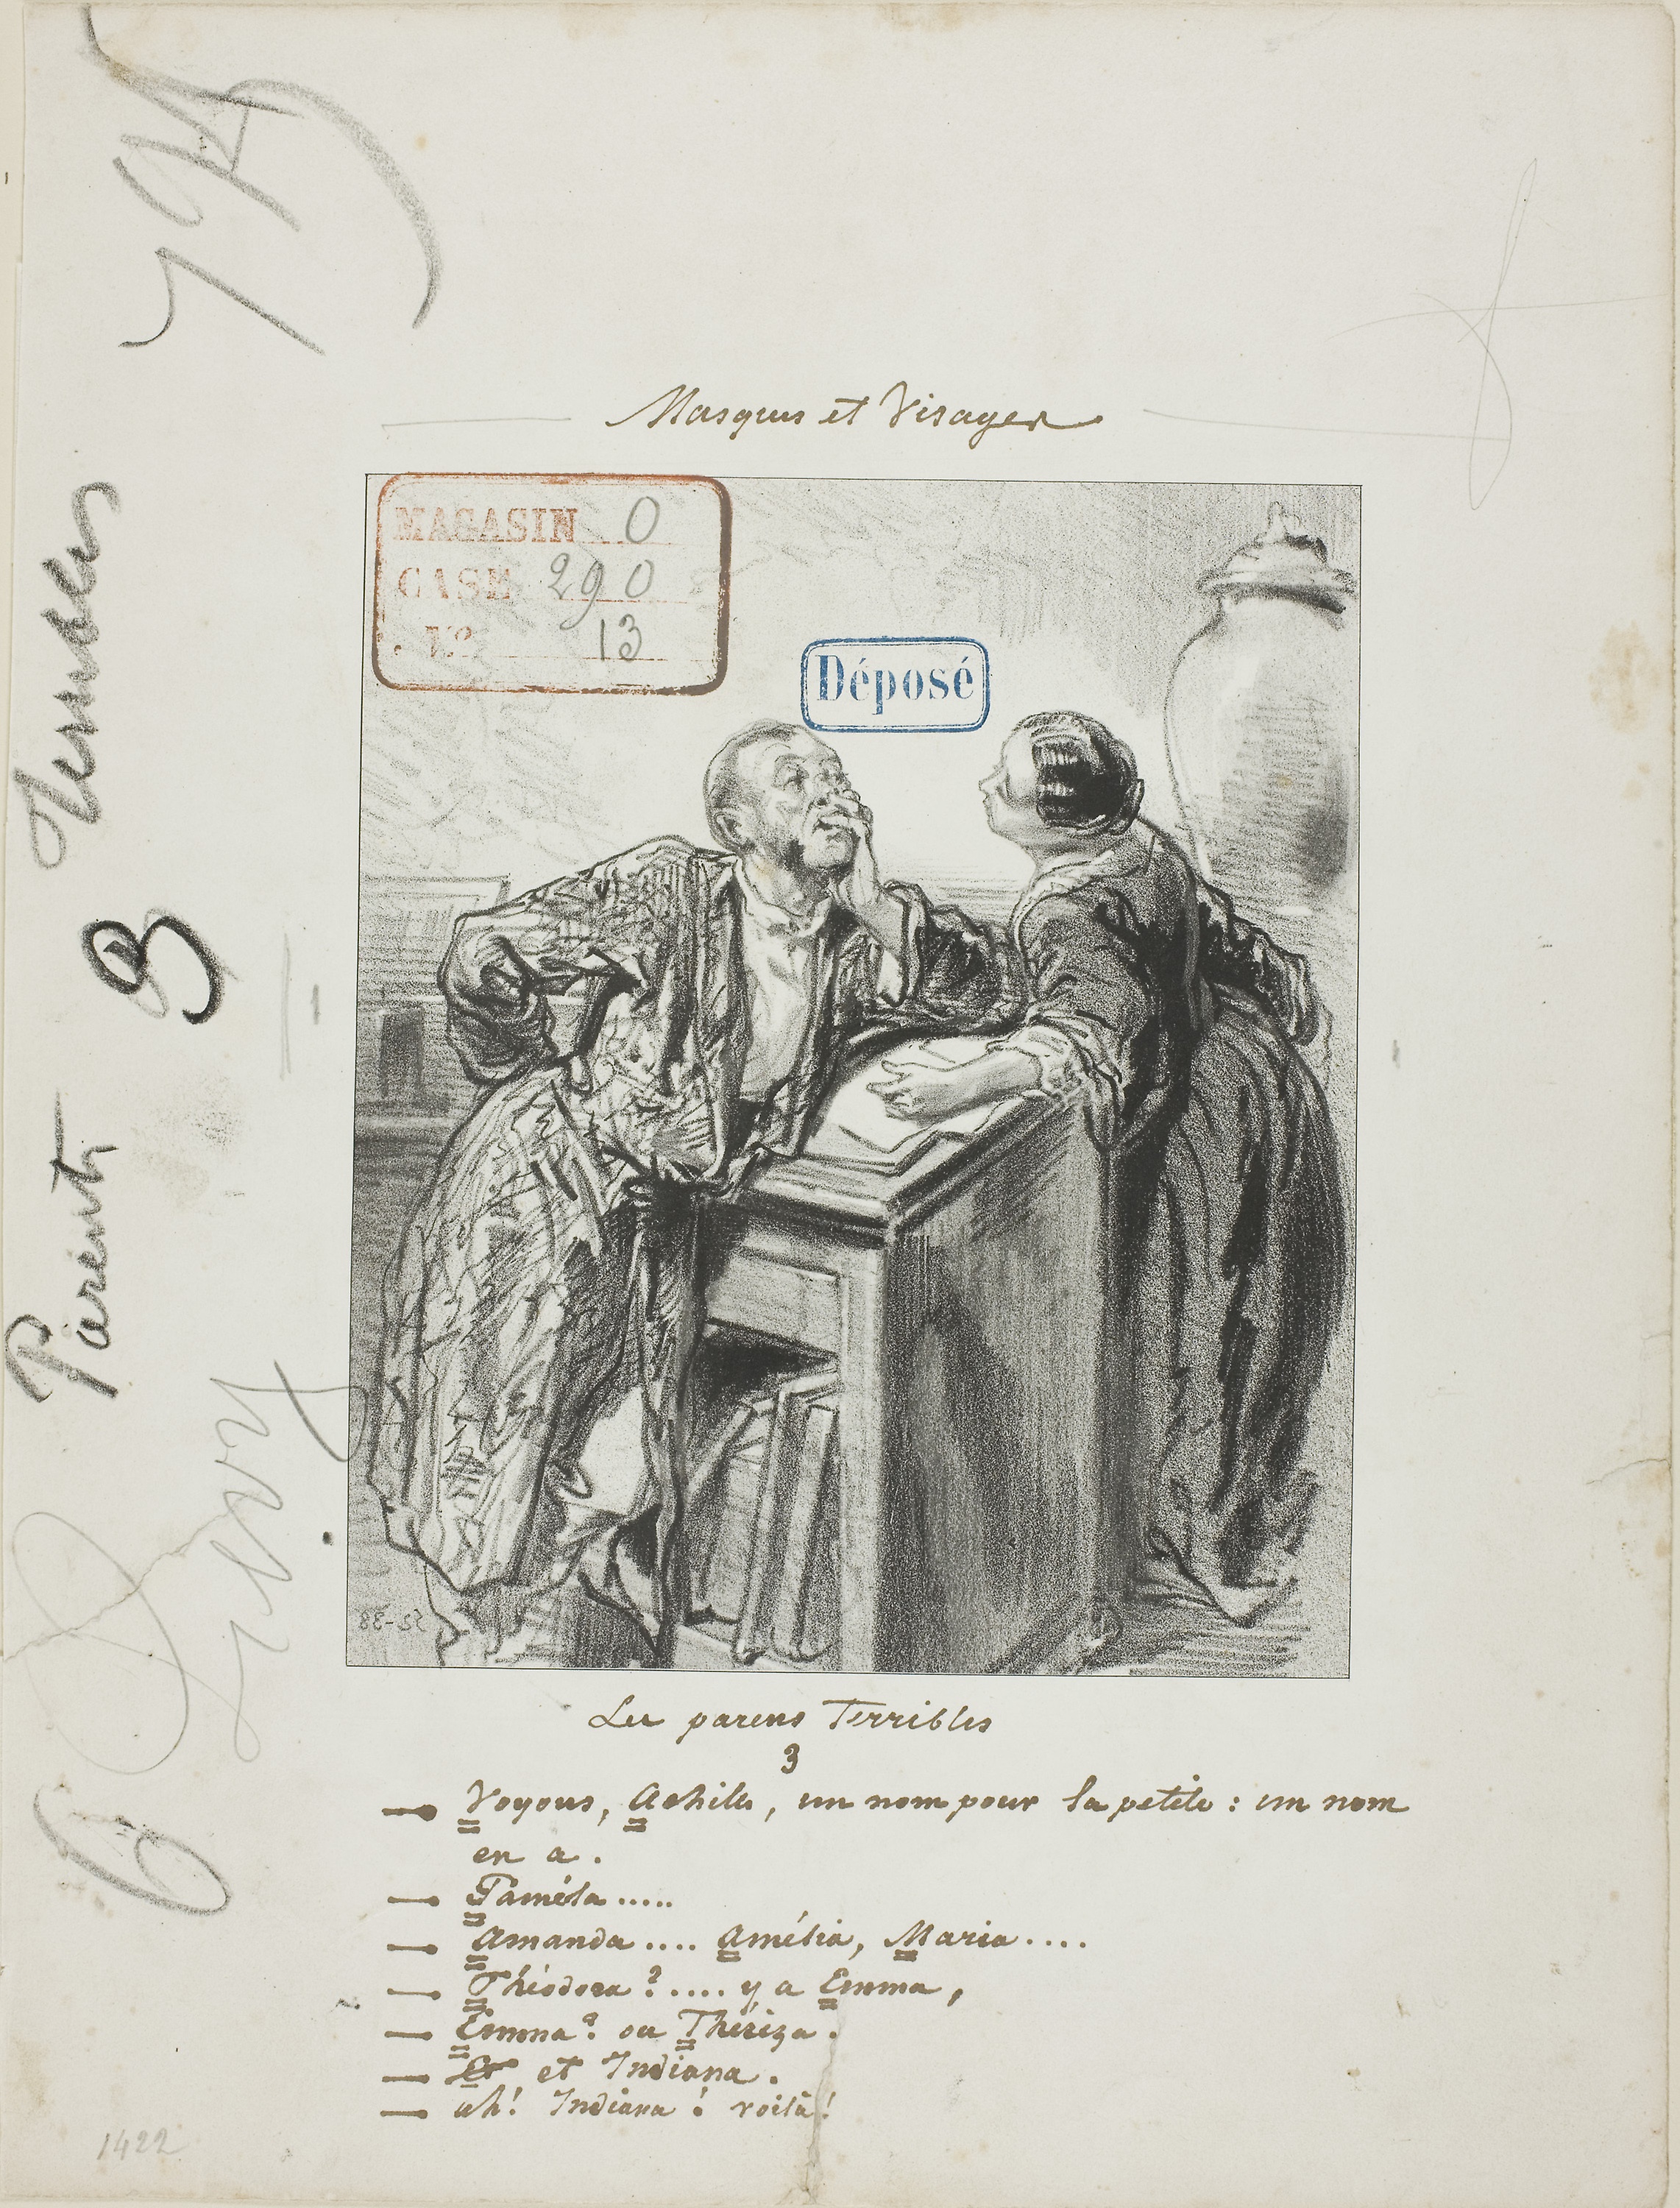 Masques et Visages
MAGASIN 0
CASE 290
No 13
Déposé
Les parens Terribles
3
— Voyons, Achille, un nom pour la petite : un nom
en a .
— Paméla .....
— Amanda .... Amélia, Maria ....
— Théodora ? .... y a Emma,
— Emma ? ou Thériza .
— Et et Indiana .
— ah ! Indiana ! voilà !
1422
Parents 3
6